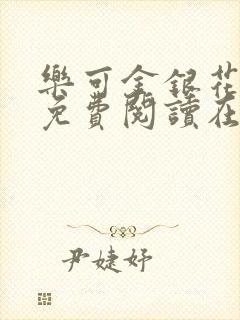 樂可金銀花
免費閱讀在
尹婕妤